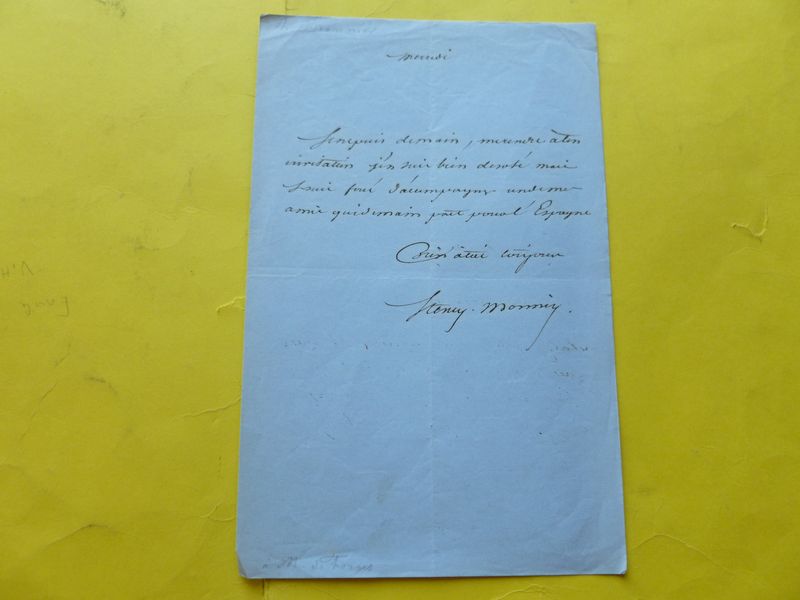 mercredi
Je ne puis demain, me rendre à ton
invitation j'en suis bien desolé mais
je suis forcé d'accompagner un de mes
amis qui demain part pour l'Espagne
toujours
Henry Monnier.
à M. de Forges